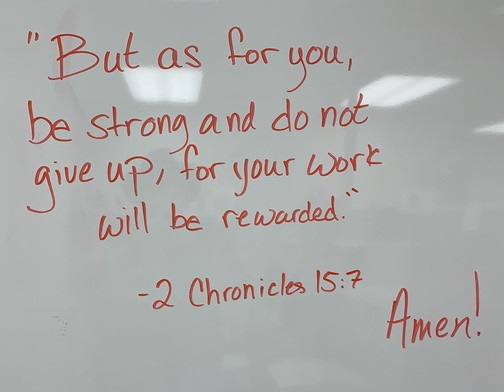 "But as for you,
be strong and do not
give up, for your work
will be rewarded."
-2 Chronicles 15:7
Amen!